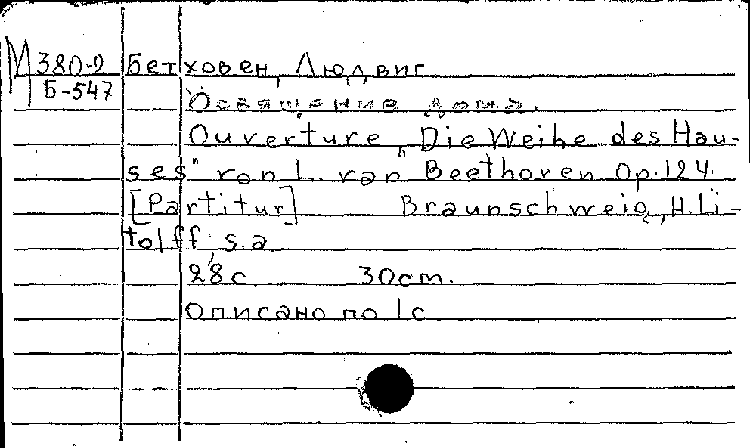 М 380-2 Бетховен, Людвиг
Б-547
Освящение дома.
Ouverture „Die Weihe des Hau-
ses" von L. van Beethoven Op. 124.
[Partitur] Braunschweig, H. Li-
tolff, s. a
28 с. 30 cm.
Описано по 1 с